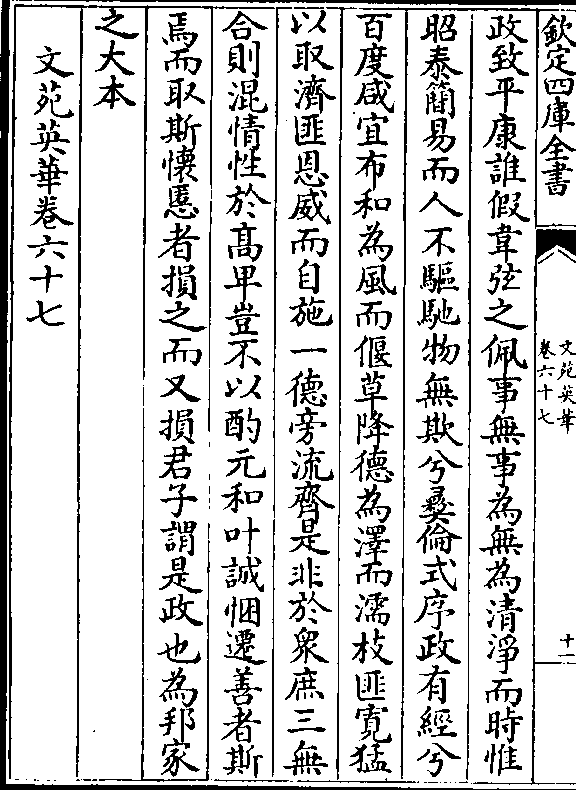 欽定四庫全書
文苑英華
卷六十七
十一
政致平康誰假韋弦之佩事無事為無為清淨而時惟
昭泰簡易而人不驅馳物無欺兮彝倫式序政有經兮
百度咸宜布和為風而偃草降德為澤而濡枝匪寛猛
以取濟匪恩威而自施一德旁流齊是非於衆庶三無
合則混情性於髙卑豈不以酌元和叶誠悃遷善者斯
焉而取斯懷慝者損之而又損君子謂是政也為邦家
之大本
文苑英華卷六十七